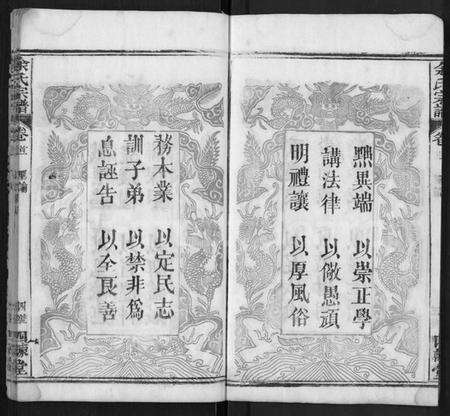 黜異端 以崇正學
講法律 以儆愚頑
明禮讓 以厚風俗
務本業 以定民志
訓子弟 以禁非為
息誣告 以全良善
余氏宗譜 卷首 聖諭